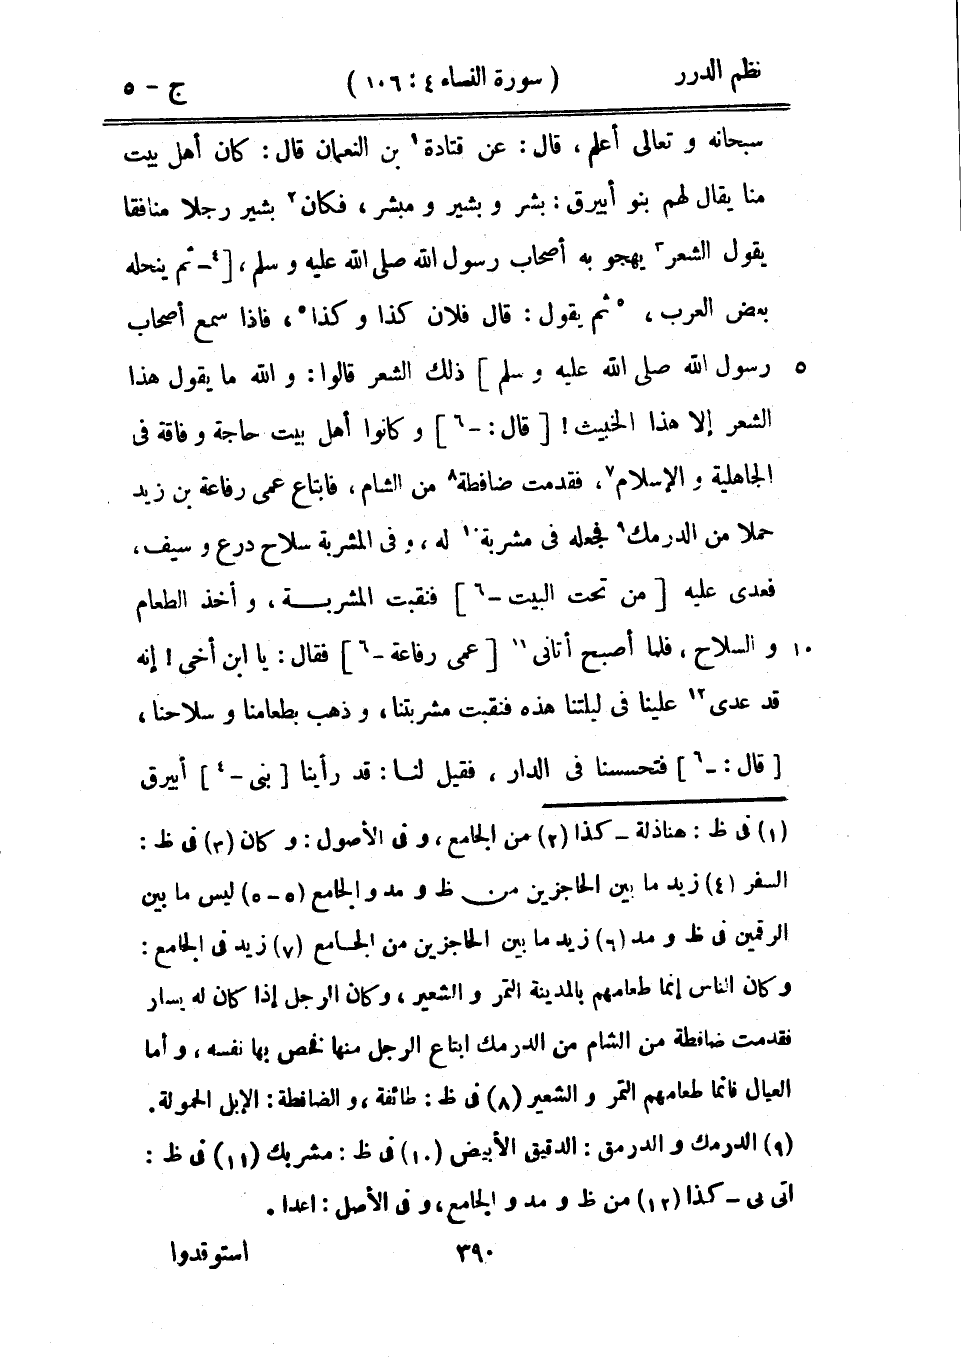 نظم الدرر ( سورة النساء ٤ : ١٠٦ ) ج - ٥
سبحانه و تعالى أعلم ، قال : عن قتادة١ بن النعمان قال : كان أهل بيت
منا يقال لهم بنو أبيرق : بشر و بشير و مبشر ، فكان٢ بشير رجلا منافقا
يقول الشعر٣ يهجو به أصحاب رسول الله صلى الله عليه و سلم ، [ ٤ـ ثم ينحله
بعض العرب ، ٥ثم يقول : قال فلان كذا و كذا٥ ، فاذا سمع أصحاب
٥ رسول الله صلى الله عليه و سلم ] ذلك الشعر قالوا : و الله ما يقول هذا
الشعر إلا هذا الخبيث ! [ قال : -٦ ] و كانوا أهل بيت حاجة و فاقة فى
الجاهلية و الإسلام٧ ، فقدمت ضافطة٨ من الشام ، فابتاع عمى رفاعة بن زيد
حملا من الدرمك٩ فجعله فى مشربة١٠ له ، و فى المشربة سلاح درع و سيف ،
فعدى عليه [ من تحت البيت -٦ ] فنقبت المشربـــة ، و أخذ الطعام
١٠ و السلاح ، فلما أصبح أتانى١١ [ عمى رفاعة -٦ ] فقال : يا ابن أخى ! إنه
قد عدى١٢ علينا فى ليلتنا هذه فنقبت مشربتنا ، و ذهب بطعامنا و سلاحنا ،
[ قال : -٦ ] فتحسسنا فى الدار ، فقيل لنـا : قد رأينا [ بنى -٤ ] أبيرق
(١) فى ظ : هناذلة ـ كذا (٢) من الجامع ، و فى الأصول : و كان (٣) فى ظ :
السفر (٤) زيد ما بين الحاجزين من ظ و مد و الجامع (٥ - ٥) ليس ما بين
الرقمين فى ظ و مد (٦) زيد ما بين الحاجزين من الجـامع (٧) زيد فى الجامع :
و كان الناس إنما طعامهم بالمدينة التمر و الشعير ، وكان الرجل إذا كان له يسار
فقدمت ضافطة من الشام من الدرمك ابتاع الرجل منها فخص بها نفسه ، و أما
العيال فانما طعامهم التمر و الشعير (٨) فى ظ : طائفة ، و الضافطة : الإبل الحمولة .
(٩) الدرمك و الدرمق : الدقيق الأبيض (١٠) فى ظ : مشربك (١١) فى ظ :
اتى بى ـ كذا (١٢) من ظ و مد و الجامع ، و فى الأصل : اعدا .
٣٩٠ استوقدوا